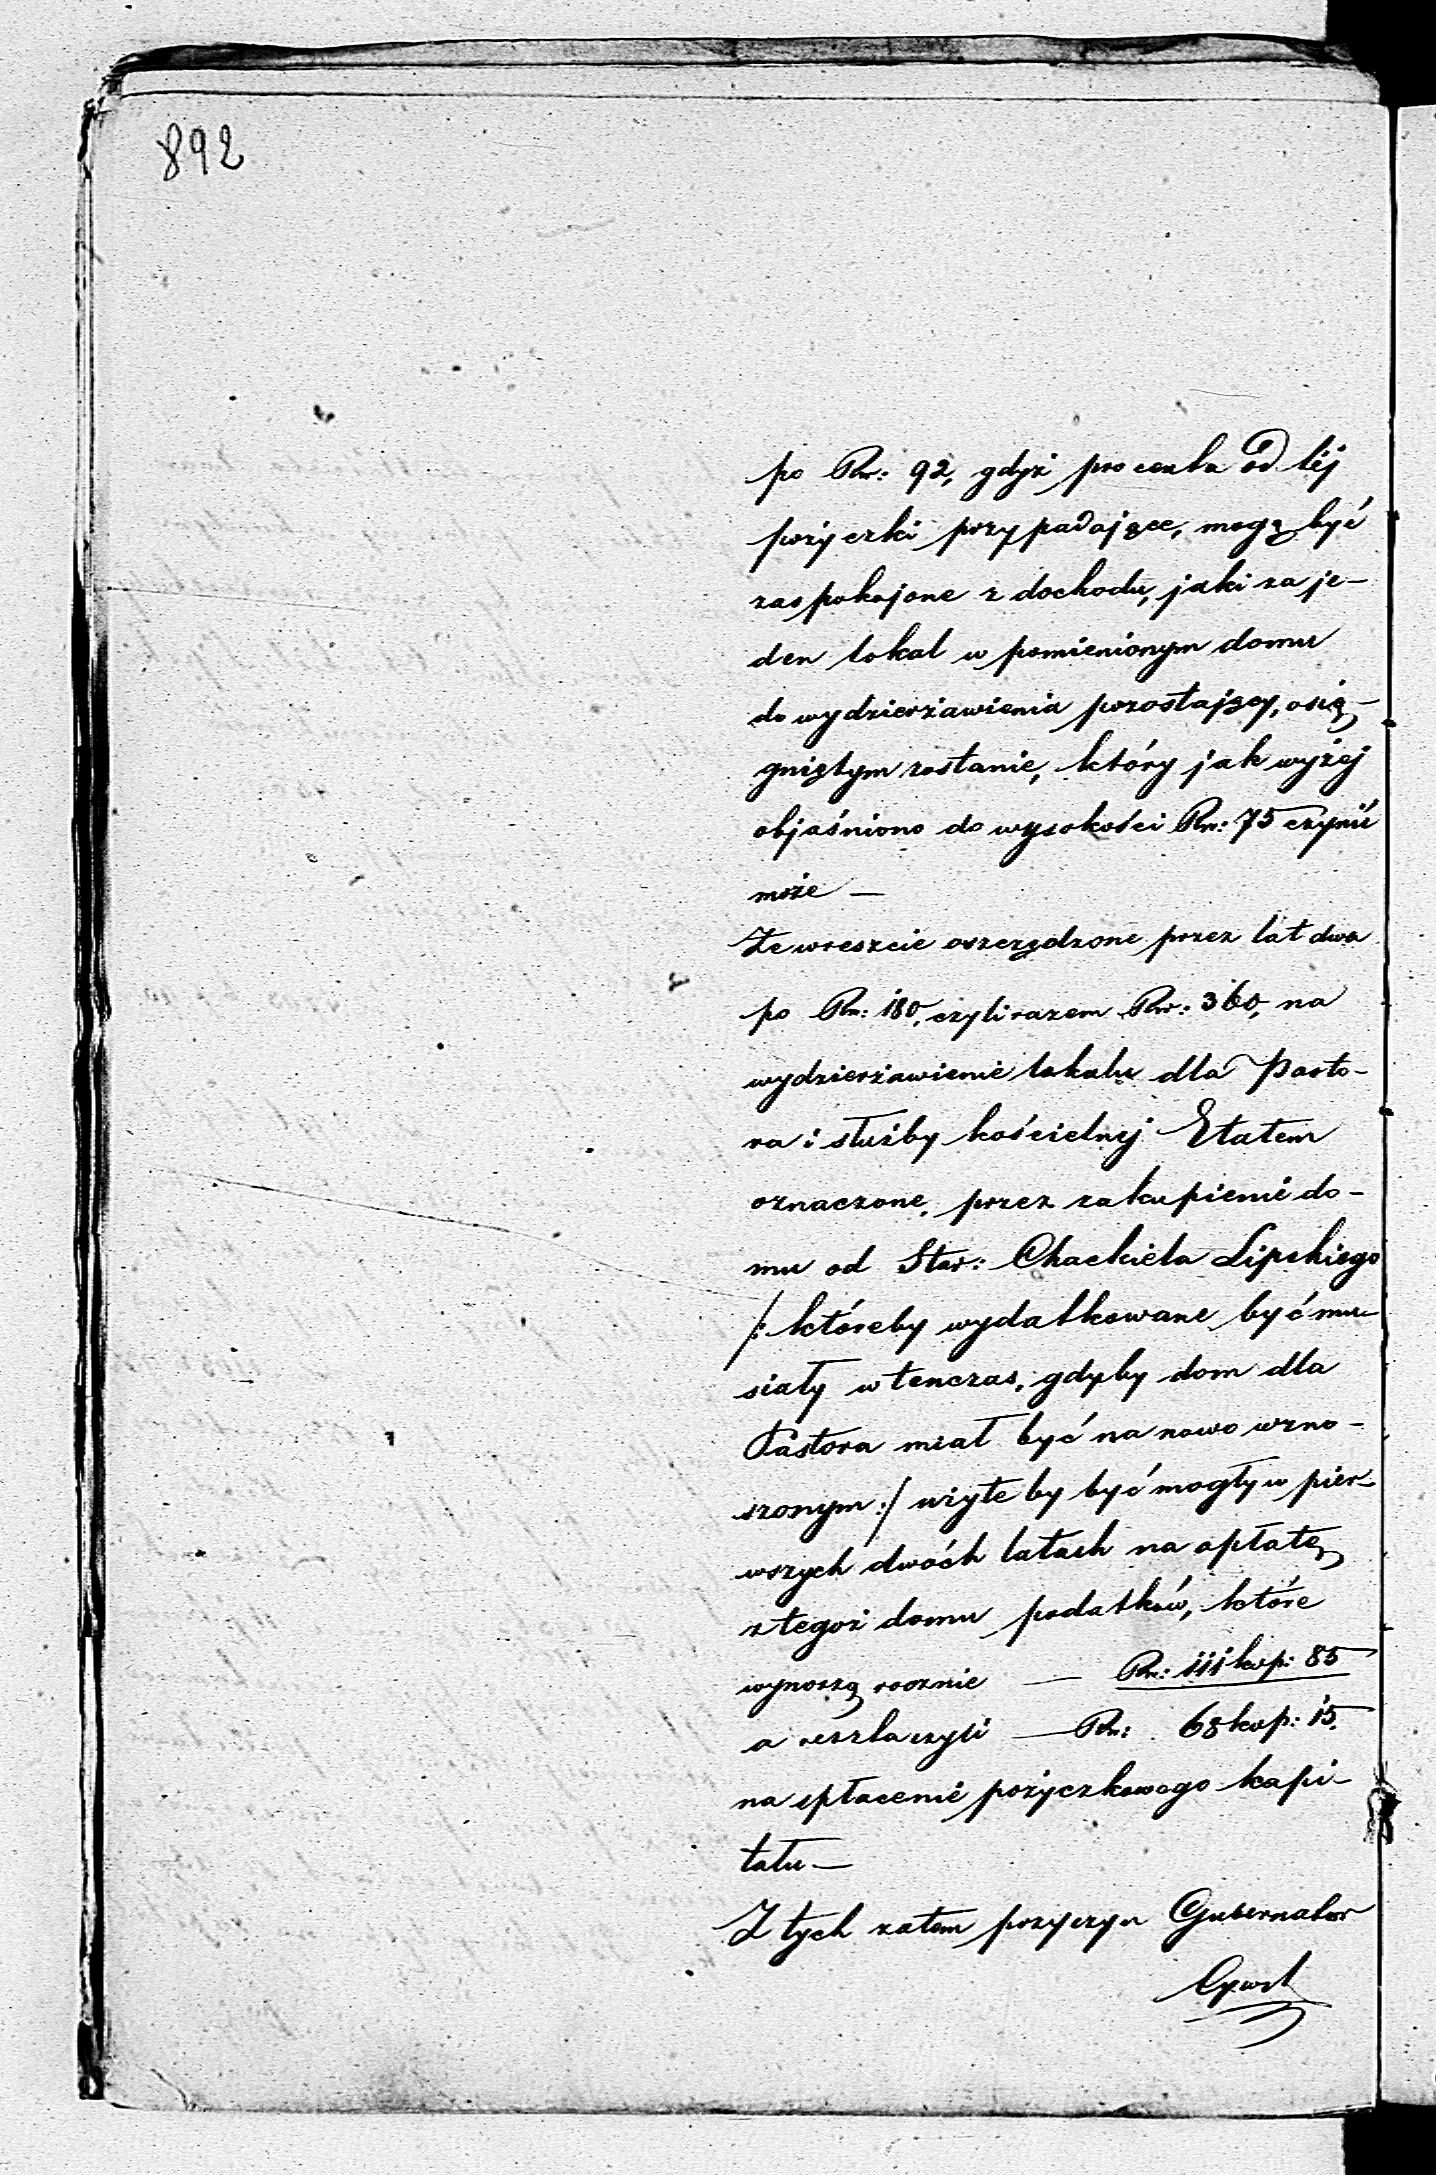 892
po Rsr: 92, gdyż procenta od téj
pożyczki przypadające, mogą być
zaspokojone z dochodu, jaki za je-
den lokal w pomienionym domu
do wydzierżawienia pozostający, osią-
gniętym zostanie, który jak wyżej
objaśniono do wysokości Rsr: 75 czynić
może —
Że wreszcie oszczędzone przez lat dwa
po Rsr: 180, czyli razem Rsr: 360, na
wydzierżawienie lokalu dla Pasto-
ra i służby kościelnej Etatem
oznaczone, przez zakupienie do-
mu od Star: Chackiela Lipskiego
/: któreby wydatkowane być mu-
siały wtenczas, gdyby dom dla
Pastora miał być na nowo wzno-
szonym :/ użyte by być mogły w pier-
wszych dwóch latach na opłatę
z tegoż domu podatków, które
wynoszą rocznie — Rsr: 111 kop: 85
a reszta czyli — Rsr: 68 kop: 15.
na spłacenie pożyczkowego kapi-
tału —
Z tych zatem przyczyn Gubernator
Cywil